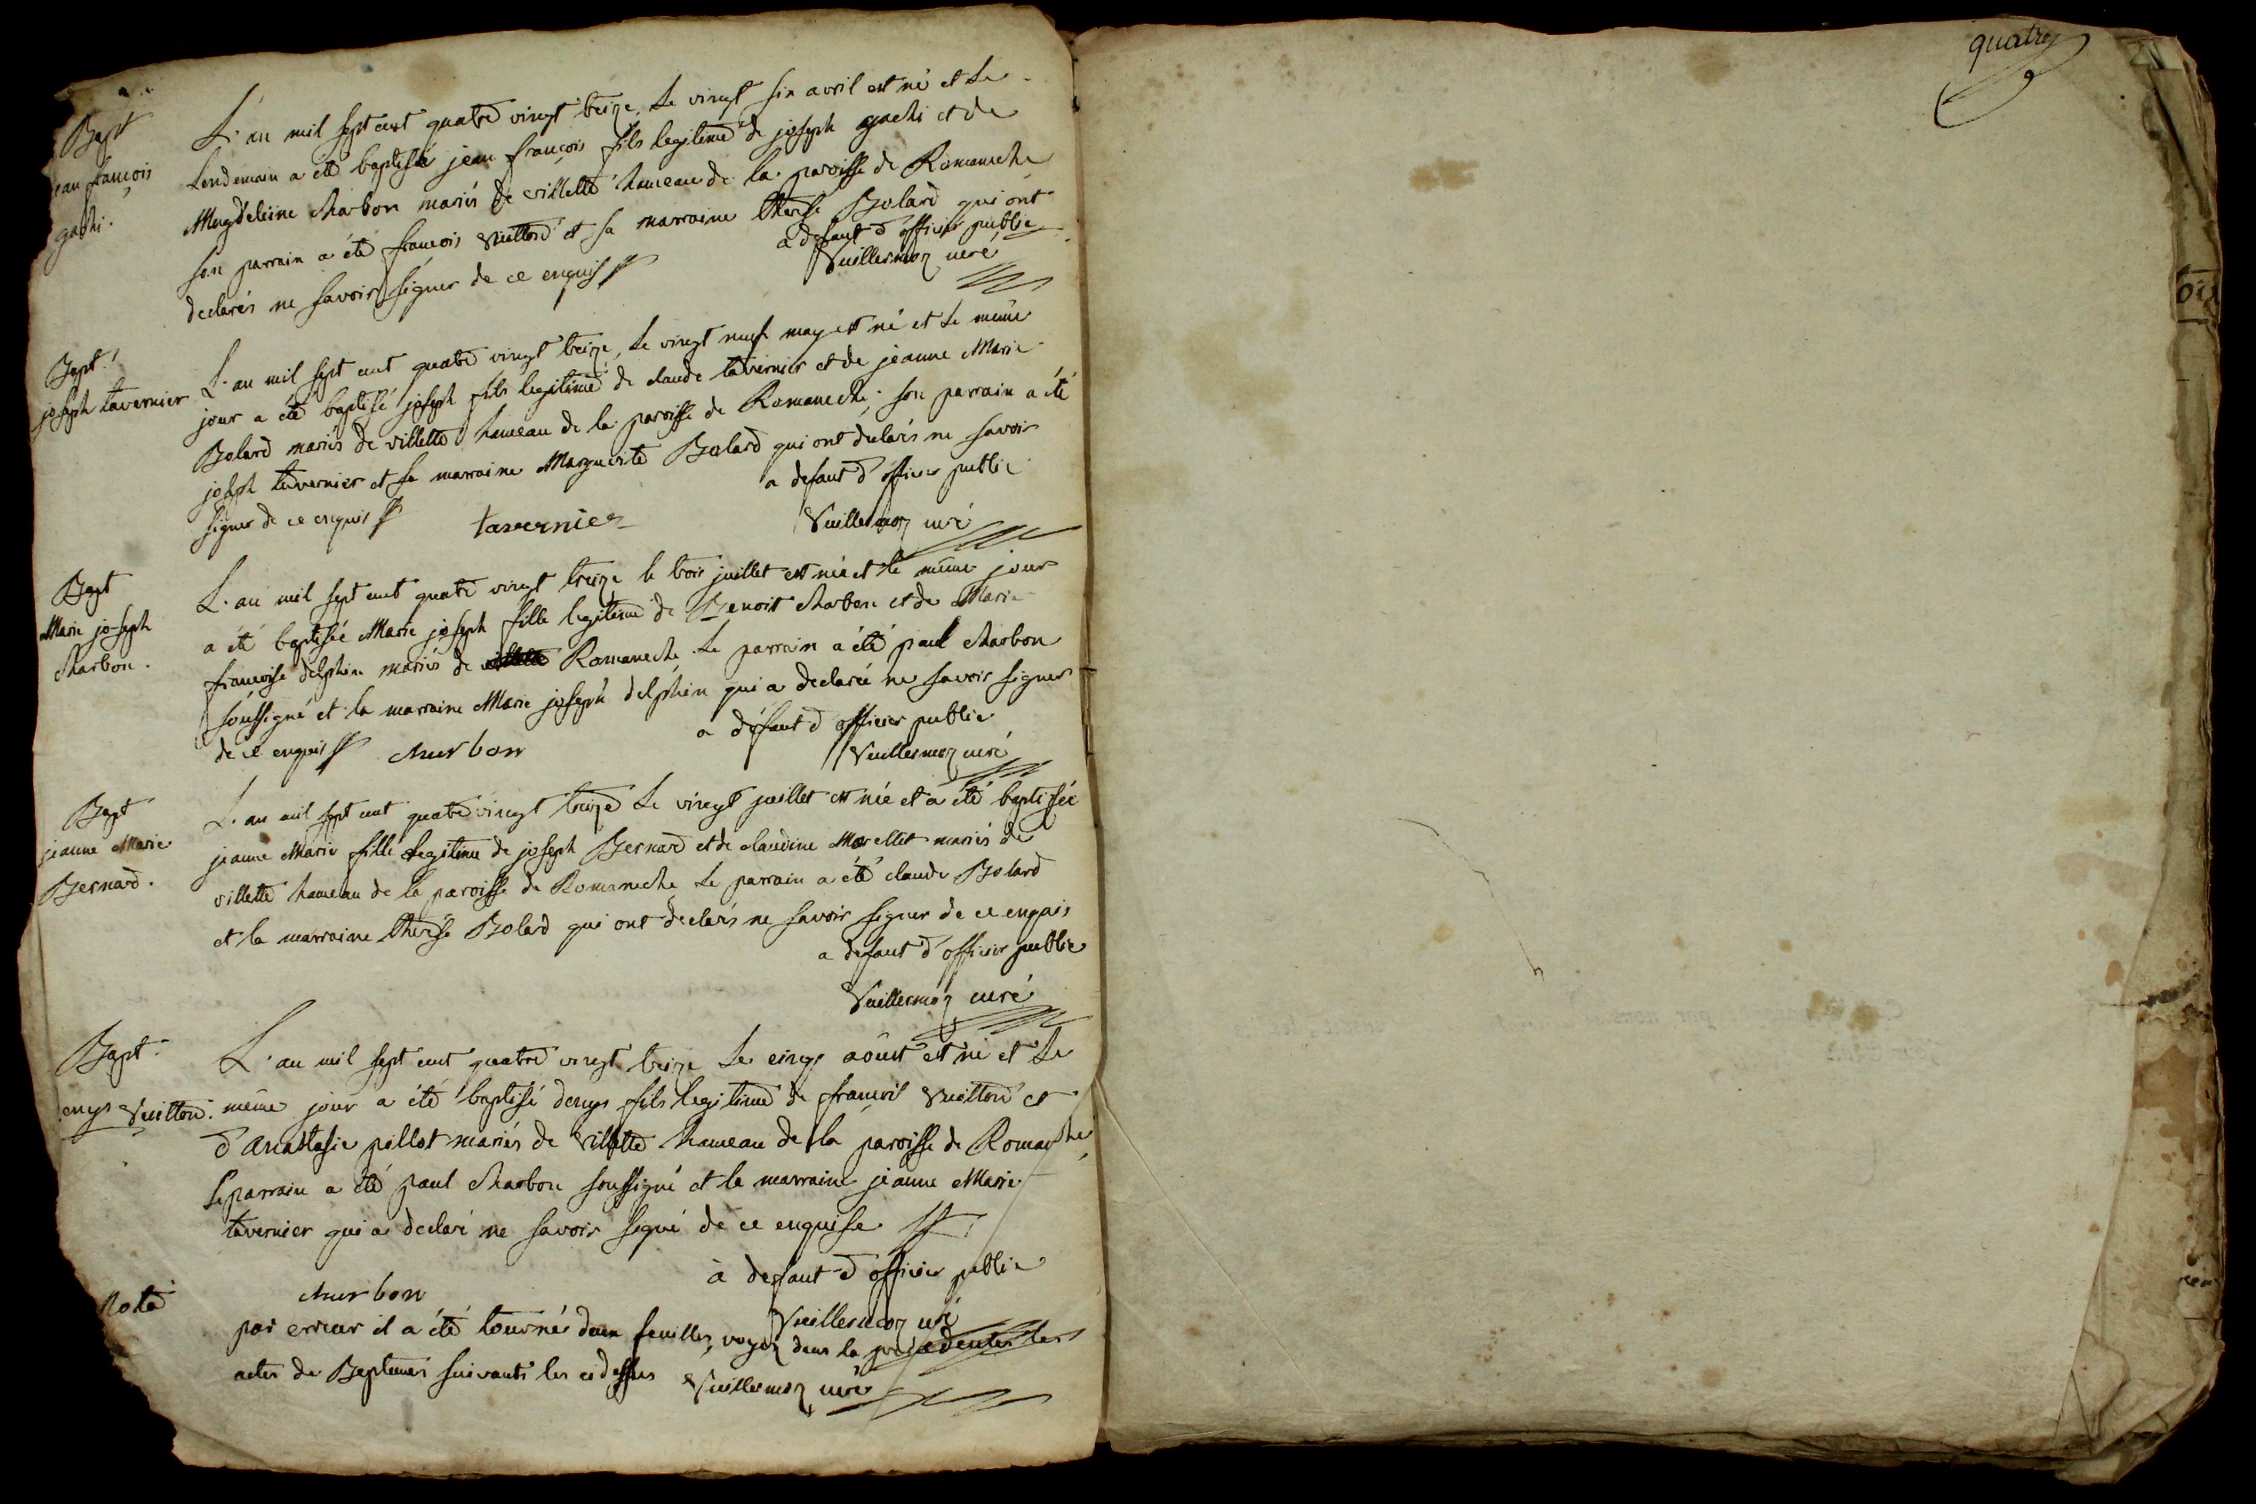 quatre
Bapt
jean françois
gachi.
L'an mil sept cent quatre vingt treize, le vingt six avril est né et le
lendemain a été baptisé jean françois fils legitime de joseph gachi et de
Magdeleine charbon mariés de villette hameau de la paroisse de Romaneche
son parrain a été francois vuitton et sa marraine therese Bolard qui ont
declarés ne savoir signer de ce enquis
a defaut d'officier public
Vuillermoz curé
Bapt.
joseph tavernier
L'an mil sept cent quatre vingt treize, le vingt neuf may est né et le même
jour a été baptisé joseph fils legitime de claude tavernier et de jeanne Marie
Bolard mariés de villette hameau de la paroisse de Romaneche; son parrain a été
joseph tavernier et sa marraine Marguerite Bolard qui ont declarés ne savoir
signer de ce enquis
tavernier
a defaut d'officier public
Vuillermoz curé
Bapt
Marie joseph
charbon.
L'an mil sept cent quatre vingt treize le trois juillet est née et le même jour
a été baptisée Marie joseph fille legitime de Benoit charbon et de Marie
francoise delphin mariés de Romaneche le parrain a été paul charbon
soussigné et la marraine Marie joseph delphin qui a declarée ne savoir signer
de ce enquis
churbon
a défaut d'officier public
Vuillermoz curé
Bapt
jeanne Marie
Bernard.
L'an mil sept cent quatre vingt treize le vingt juillet est née et a été baptisée
jeanne Marie fille legitime de joseph Bernard et de claudine Morellet mariés de
villette hameau de la paroisse de Romaneche le parrain a été claude Bolard
et la marraine therese Bolard qui ont declarés ne savoir signer de ce enquis
a defaut d'officier public
Vuillermoz curé
Bapt.
denys Vuitton.
L'an mil sept cent quatre vingt treize le cinq août est né et le
même jour a été baptisé denys fils legitime de francois vuitton et
d'Anastasie pillot mariés de villette hameau de la paroisse de Romaneche
le parrain a été paul charbon soussigné et la marraine jeanne Marie
tavernier qui a declaré ne savoir signé de ce enquise
a defaut d'officier public
churbon
Vuillermoz curé
Note
par erreur il a été tourné deux feuilles, voyez dans la precedentes les
actes de Baptemes suivants les cidessus Vuillermoz curé